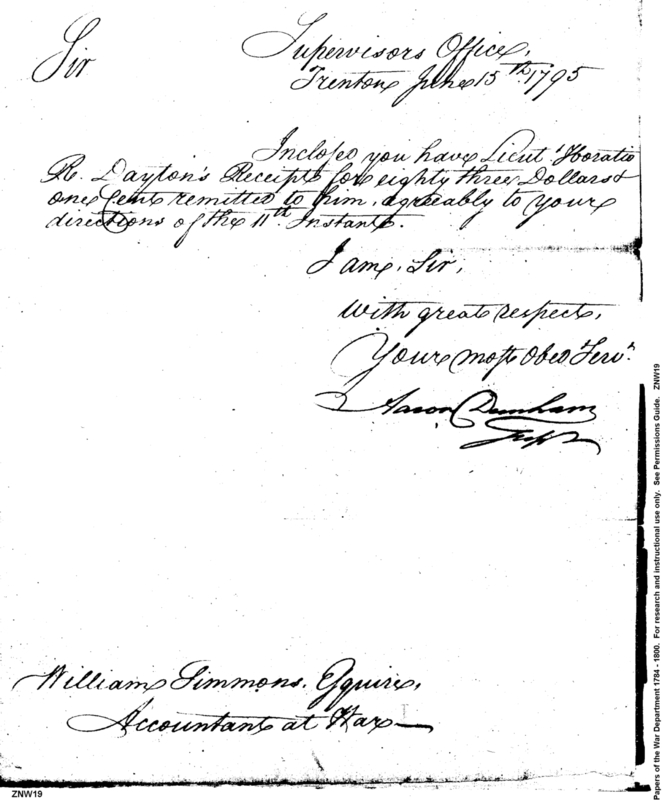 Supervisors Office,
Sir
Trenton June 15th. 1795
Inclosed you have Lieut Horatio
R. Dayton's Receipt for eighty three Dollars &
one Cent remitted to him, agreeably to your
directions of the 11th. Instant.
I am, Sir,
with great respect,
Your most Obed Serv.t
Aaron Dunham
William Simmons. Esquire,
Accountant at War
Papers of the War Department 1784 - 1800. For research and instructional use only. See Permissions Guide. ZNW19
ZNW19